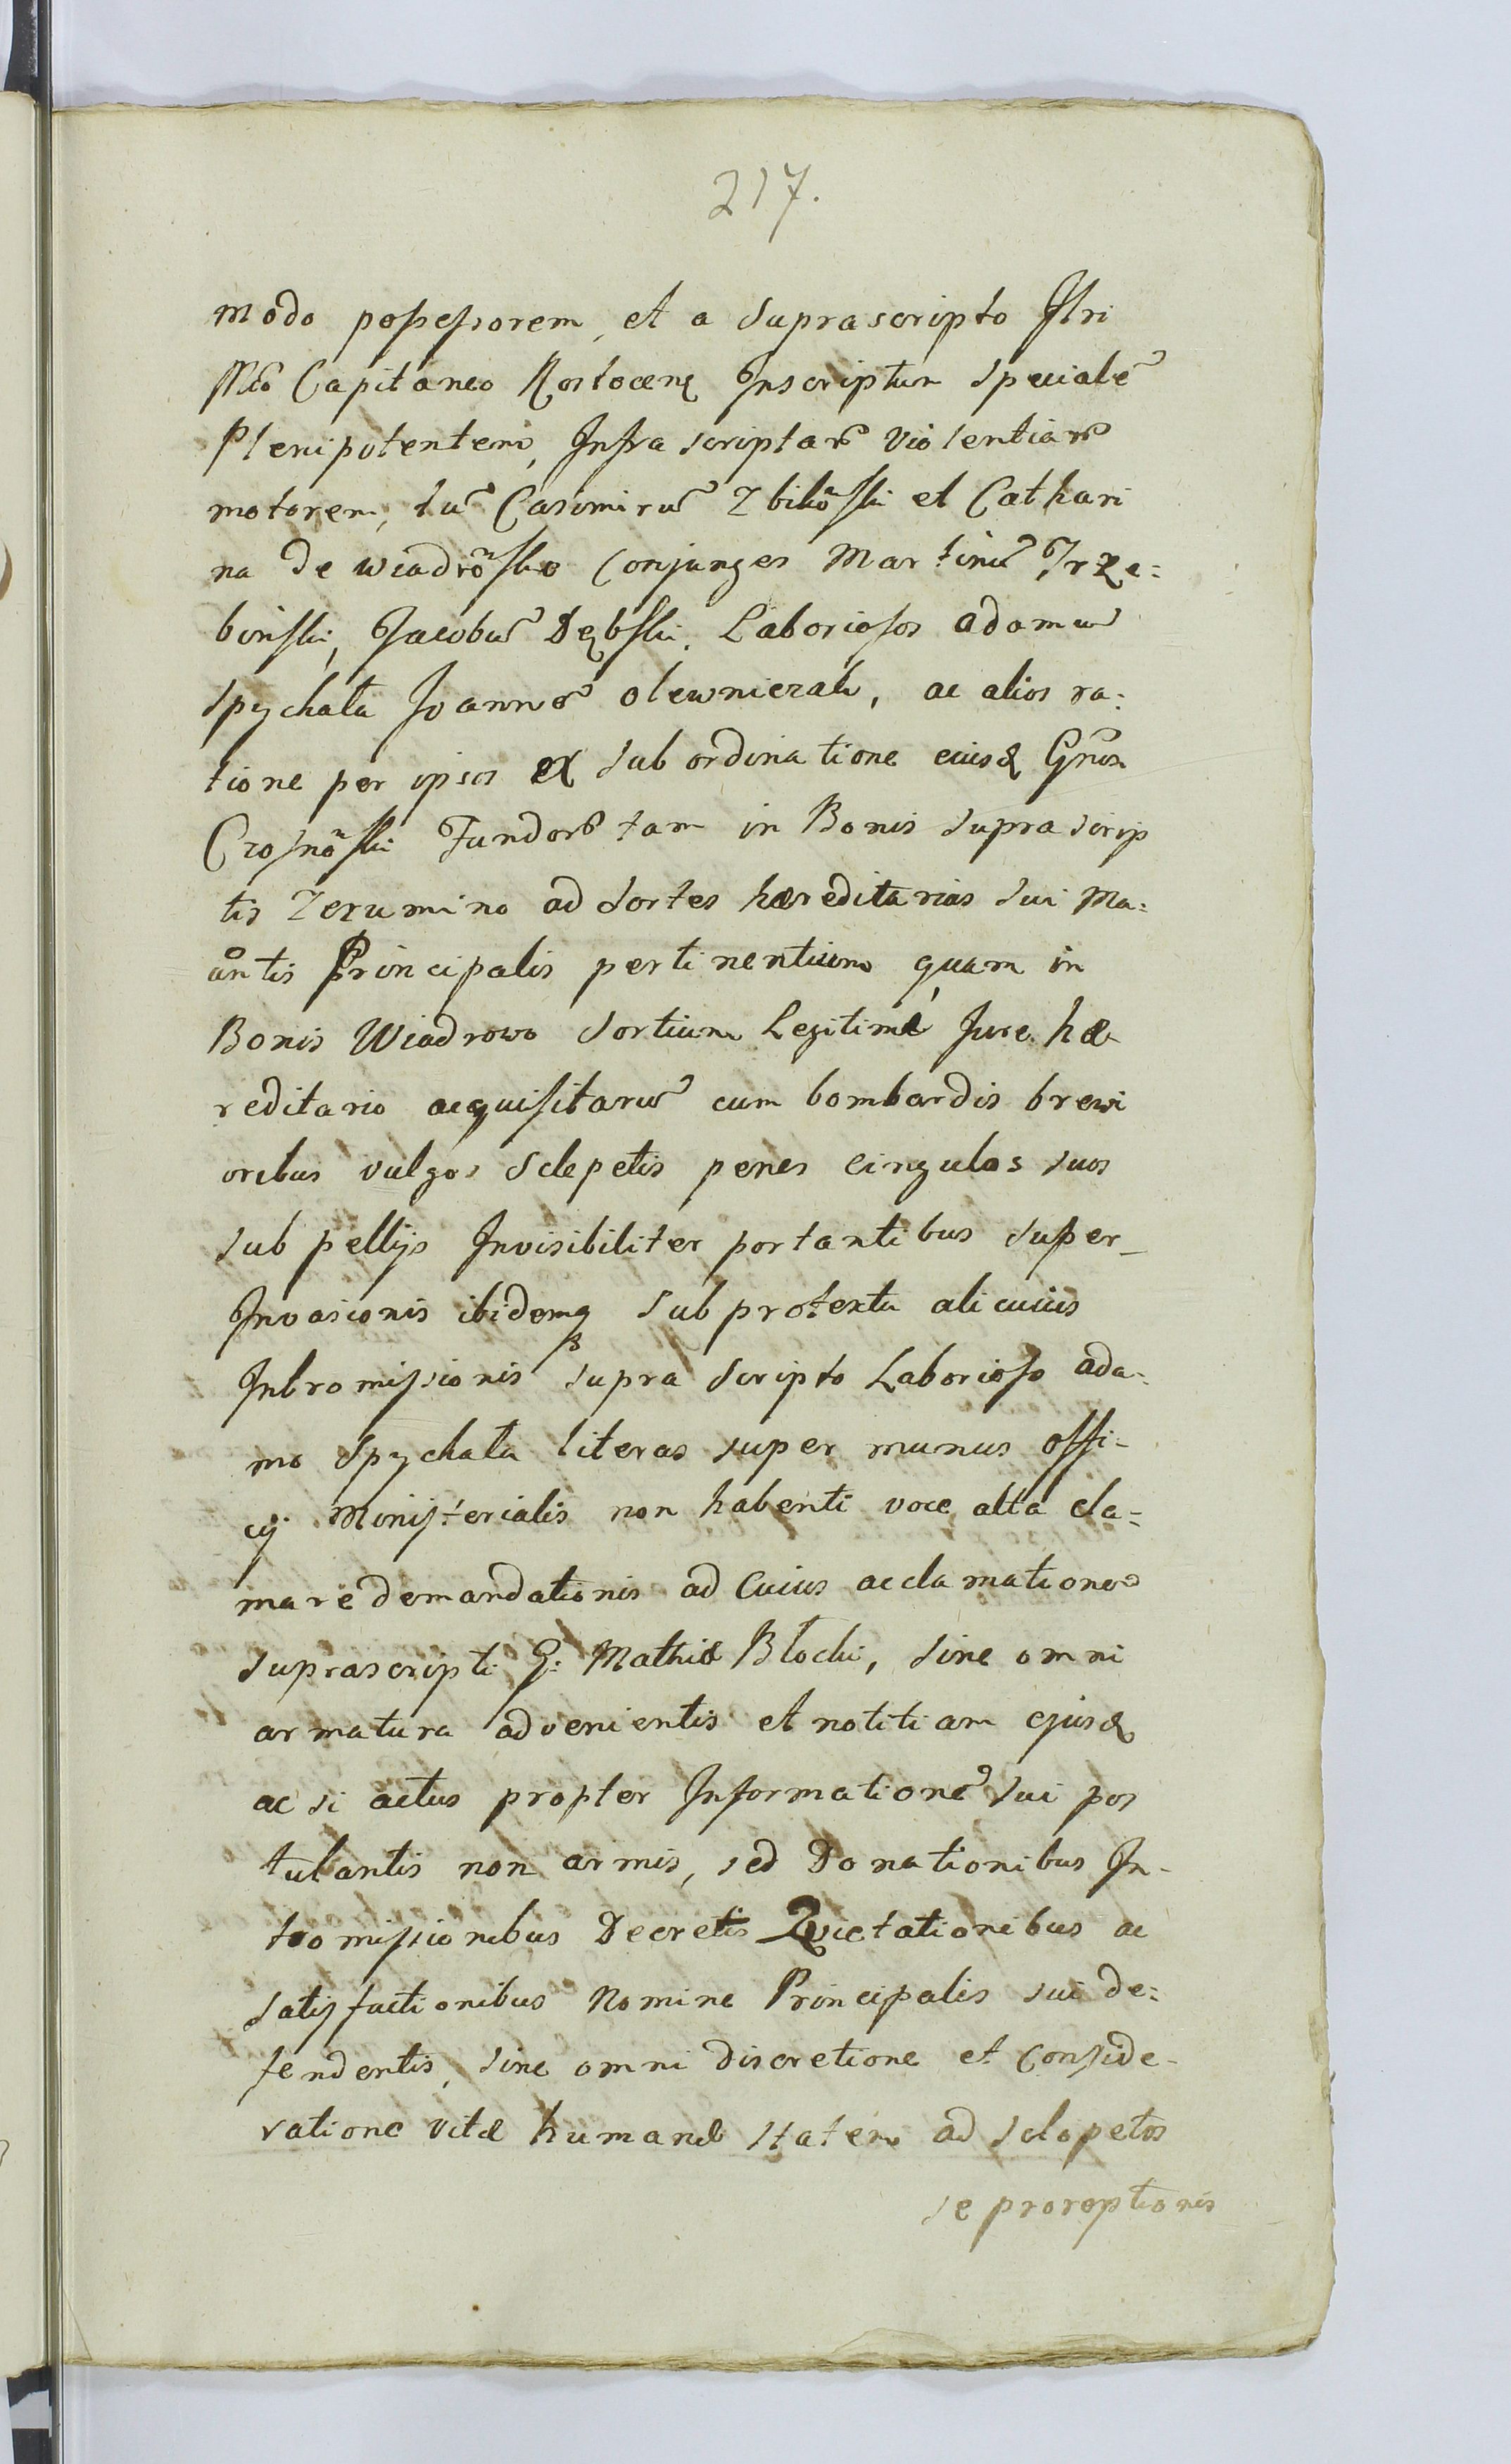 217.
modo possessorem, et a suprascripto Illri
Mco Capitaneo Rostocens Inscriptum Specialē
Plenipotentem, Infra scriptarū Violentiarū
motorem, tū Casimirū Zbikōski et Cathari
na de Wiadrōsko Conjunges Martinū Trze=
binski, Jacobū Dębski, Laboriosos adamū
Spychała Joannē olewniczak, ac alios ra=
tione per ipsos ex subordinatione eiusd Gnosi
Crosnōski Fundorū tam in Bonis suprascrip
tis Zerumino ad Sortes haereditarias sui Ma=
ãntis Principalis pertinentium quam in
Bonis Wiadrowo Sortium Legitimé Jure hae
reditario acquisitarū cum bombardis brevi
oribus vulgo Sclepetis penes cingulos suos
sub pellijs Invisibiliter portantibus super_
Invasionis ibidemq sub protextu alicuius
Intromissionis supra scripto Laborioso ada=
mo Spychała literas super munus offi=
cij Ministerialis non habenti voce alta cla=
mare demandationis ad Cuius acclamationē
suprascripti G: Mathiae Błocki, sine omni
armatura advenientis et notitiam ejusd
ac si actus propter Informationē sui pos
tulantis non armis, sed Donationibus In-
tromissionibus Decretis Quietationibus ac
satisfactionibus Nomine Principalis sui de=
fendentis, sine omni discretione et Conside-
ratione vitae humanae statem ad sclopetos
se proreptionis